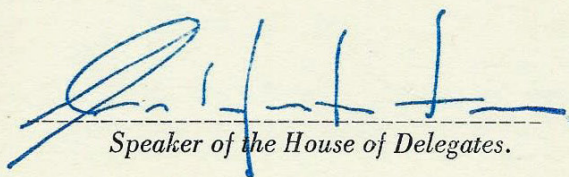 Speaker of the House of Delegates.